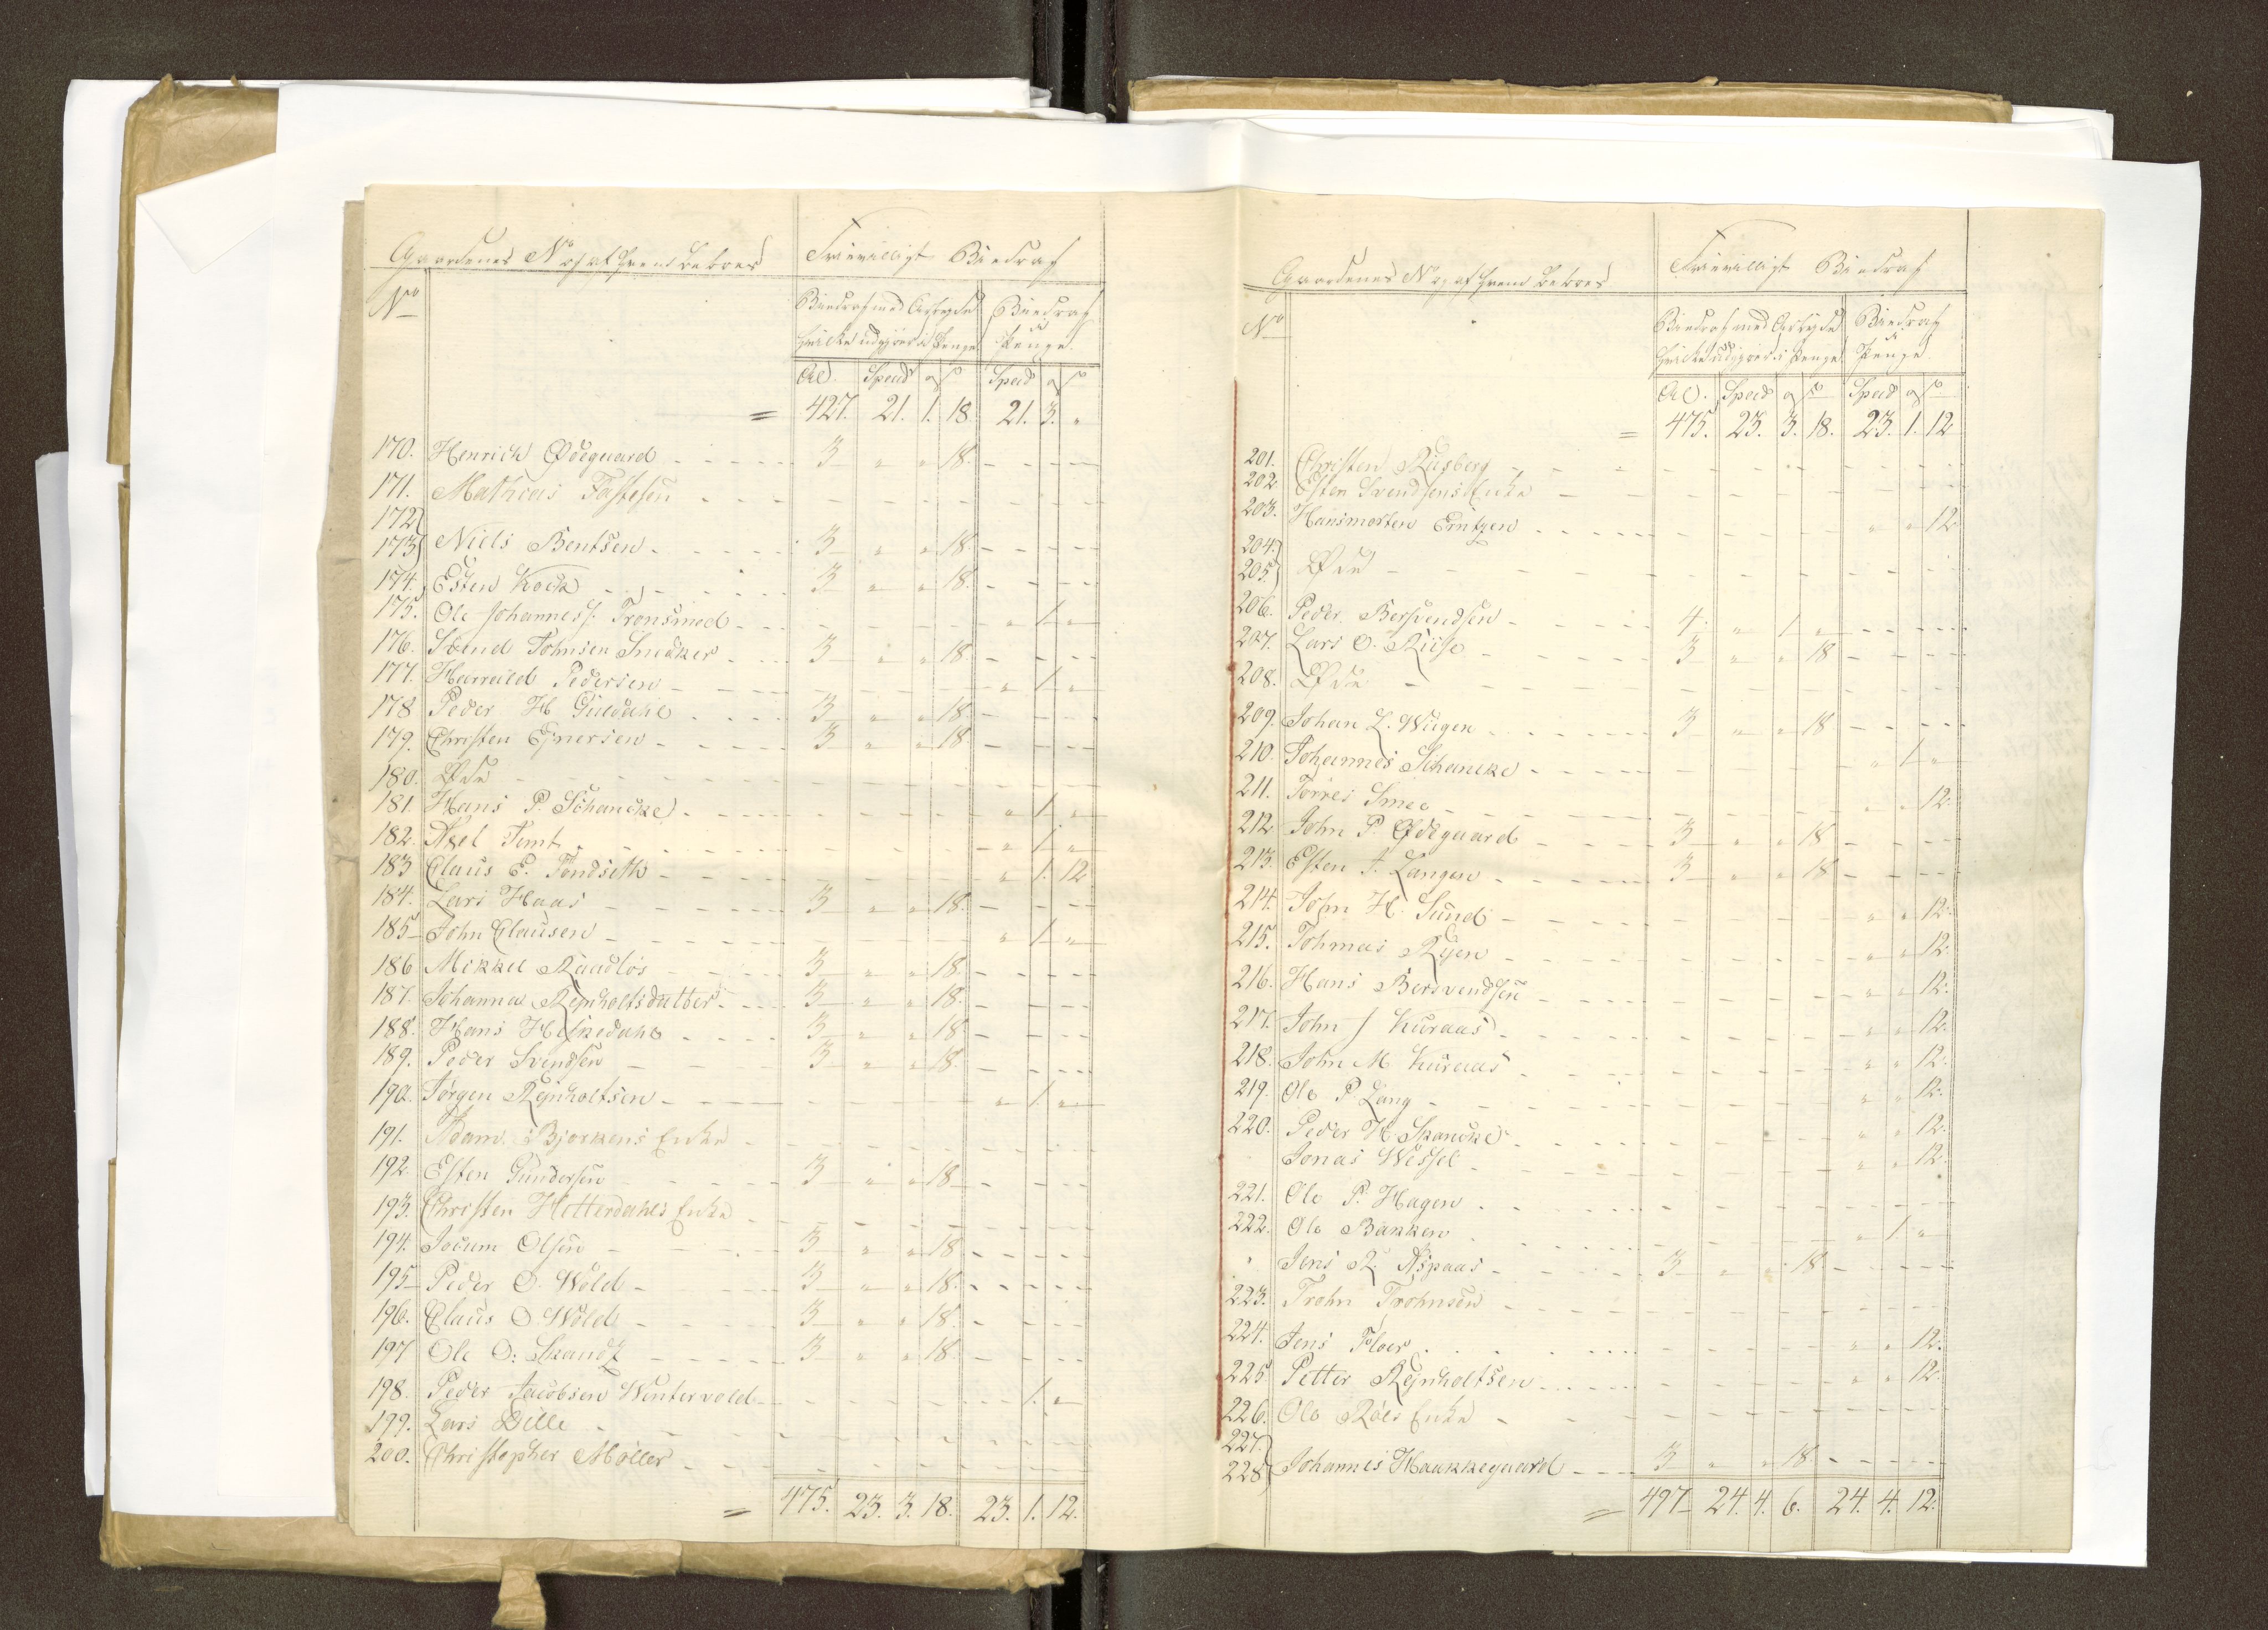 Gaardenes No og af hvem beboes
Frievilligt Biedrag
No
Biedrag med Arbeyde
hvilke udgjør i Penge
Biedrag
i
Penge.
Al. Spend Spend
= 427. 21. 1. 18. 21. 3. "
170. Henrich Ødegaard - - - - 3 " " 18. - - -
171. Mathias Fastesen - - - -
172
173 Niels Bentsen - - - - 3 " " 18. - - -
174. Esten Kock - - - - 3 " " 18. - - -
175. Ole Johanness. Tronsmed - - - " 1. "
176. Svend Johnsen Snedker - - 3 " " 18. - - -
177. Harrald Pedersen - - - - " 1. "
178 Peder H Guldahl - - - - 3 " " 18. - - -
179. Christen Ejnersen - - - - 3 " " 18. - - -
180. Øde - - - -
181. Hans P. Schancke - - - - " 1. "
182. Axel Temt - - - - " 1. "
183 Claus E. Tøndseth - - - - " 1. 12
184. Lars Haas - - - - 3 " " 18. - - -
185 John Clausen - - - - " 1. "
186 Mikkel Raadløs - - - - 3 " " 18. - - -
187. Johanna Rejnholtsdatter - - - 3 " " 18. - - -
188. Hans Helsedahl - - - - 3 " " 18. - - -
189. Peder Svendsen - - - 3 " " 18. - - -
190. Jørgen Rejnholtsen - - - - " 1. "
191. Adam Bjørkens Enke - - - -
192. Esten Gundersen - - - - 3 " " 18 - - -
193. Christen Hitterdahls Enke - - - -
194. Jocum Olsen - - - 3 " " 18 - - -
195 Peder O. Wold - - - 3 " " 18. - - -
196. Claus O. Wold - - - 3 " " 18. - - -
197 Ole O: - - - 3 " " 18. - - -
198. Peder Jacobsen Wintervold - - - 1. "
199. Lars Dille - - - -
200. Christopher Møller - - - -
= 475. 23. 3. 18. 23. 1. 12.
Gaardenes No og af hvem beboes
Frievilligt Biedrag
No
Biedrag med Arbeyde
hvilke udgjør i Penge
Biedrag
i
Penge.
Al. Spend Spend
= 475. 23. 3. 18. 23. 1. 12
201. Christen Rusberg - - - -
202 Esten Svendsens Enke - - - -
203. Hansmorten Erntzen - - - - " " 12
204.
205. Øde - - - -
206. Peder Bersvendsen - - - - 4. " 1 " - - -
207. Lars O. Riise - - - - 3 " " 18 - - -
208. Øde - - - -
209. Johan L. Wiigen - - - - 3 " " 18 - - -
210. Johannes Schancke - - - - " 1. "
211. Torres Smee - - - - " " 12.
212 John P. Ødegaard - - - - 3 " " 18 - - -
213. Esten J. Langen - - - - 3 " " 18 - - -
214. John H. Sund - - - - " " 12.
215. Tohmas Ryen - - - - " " 12.
216. Hans Bersvendsen - - - - " " 12.
217. John J Kuraas - - - - " " 12.
218. John M Kuraas - - - - " " 12.
219. Ole P. Lang - - - - " " 12.
220. Peder H. Skancke - - - - " " 12.
Jonas Wessel - - - - " " 12.
221. Ole P. Hagen - - - -
222. Ole Bakken - - - - " 1 "
" Jens R. Aspaas - - - - 3 " " 18 - - -
223. Trohn Trohnsen - - - -
224. Jens Floer - - - - " " 12.
225. Petter Rejnholtsen - - - - " " 12.
226. Ole Røes Enke - - - -
227.
228 Johannes Haukkegaard - - - 3 " " 18 - - -
= 497 24. 4. 6. 24. 4. 12.